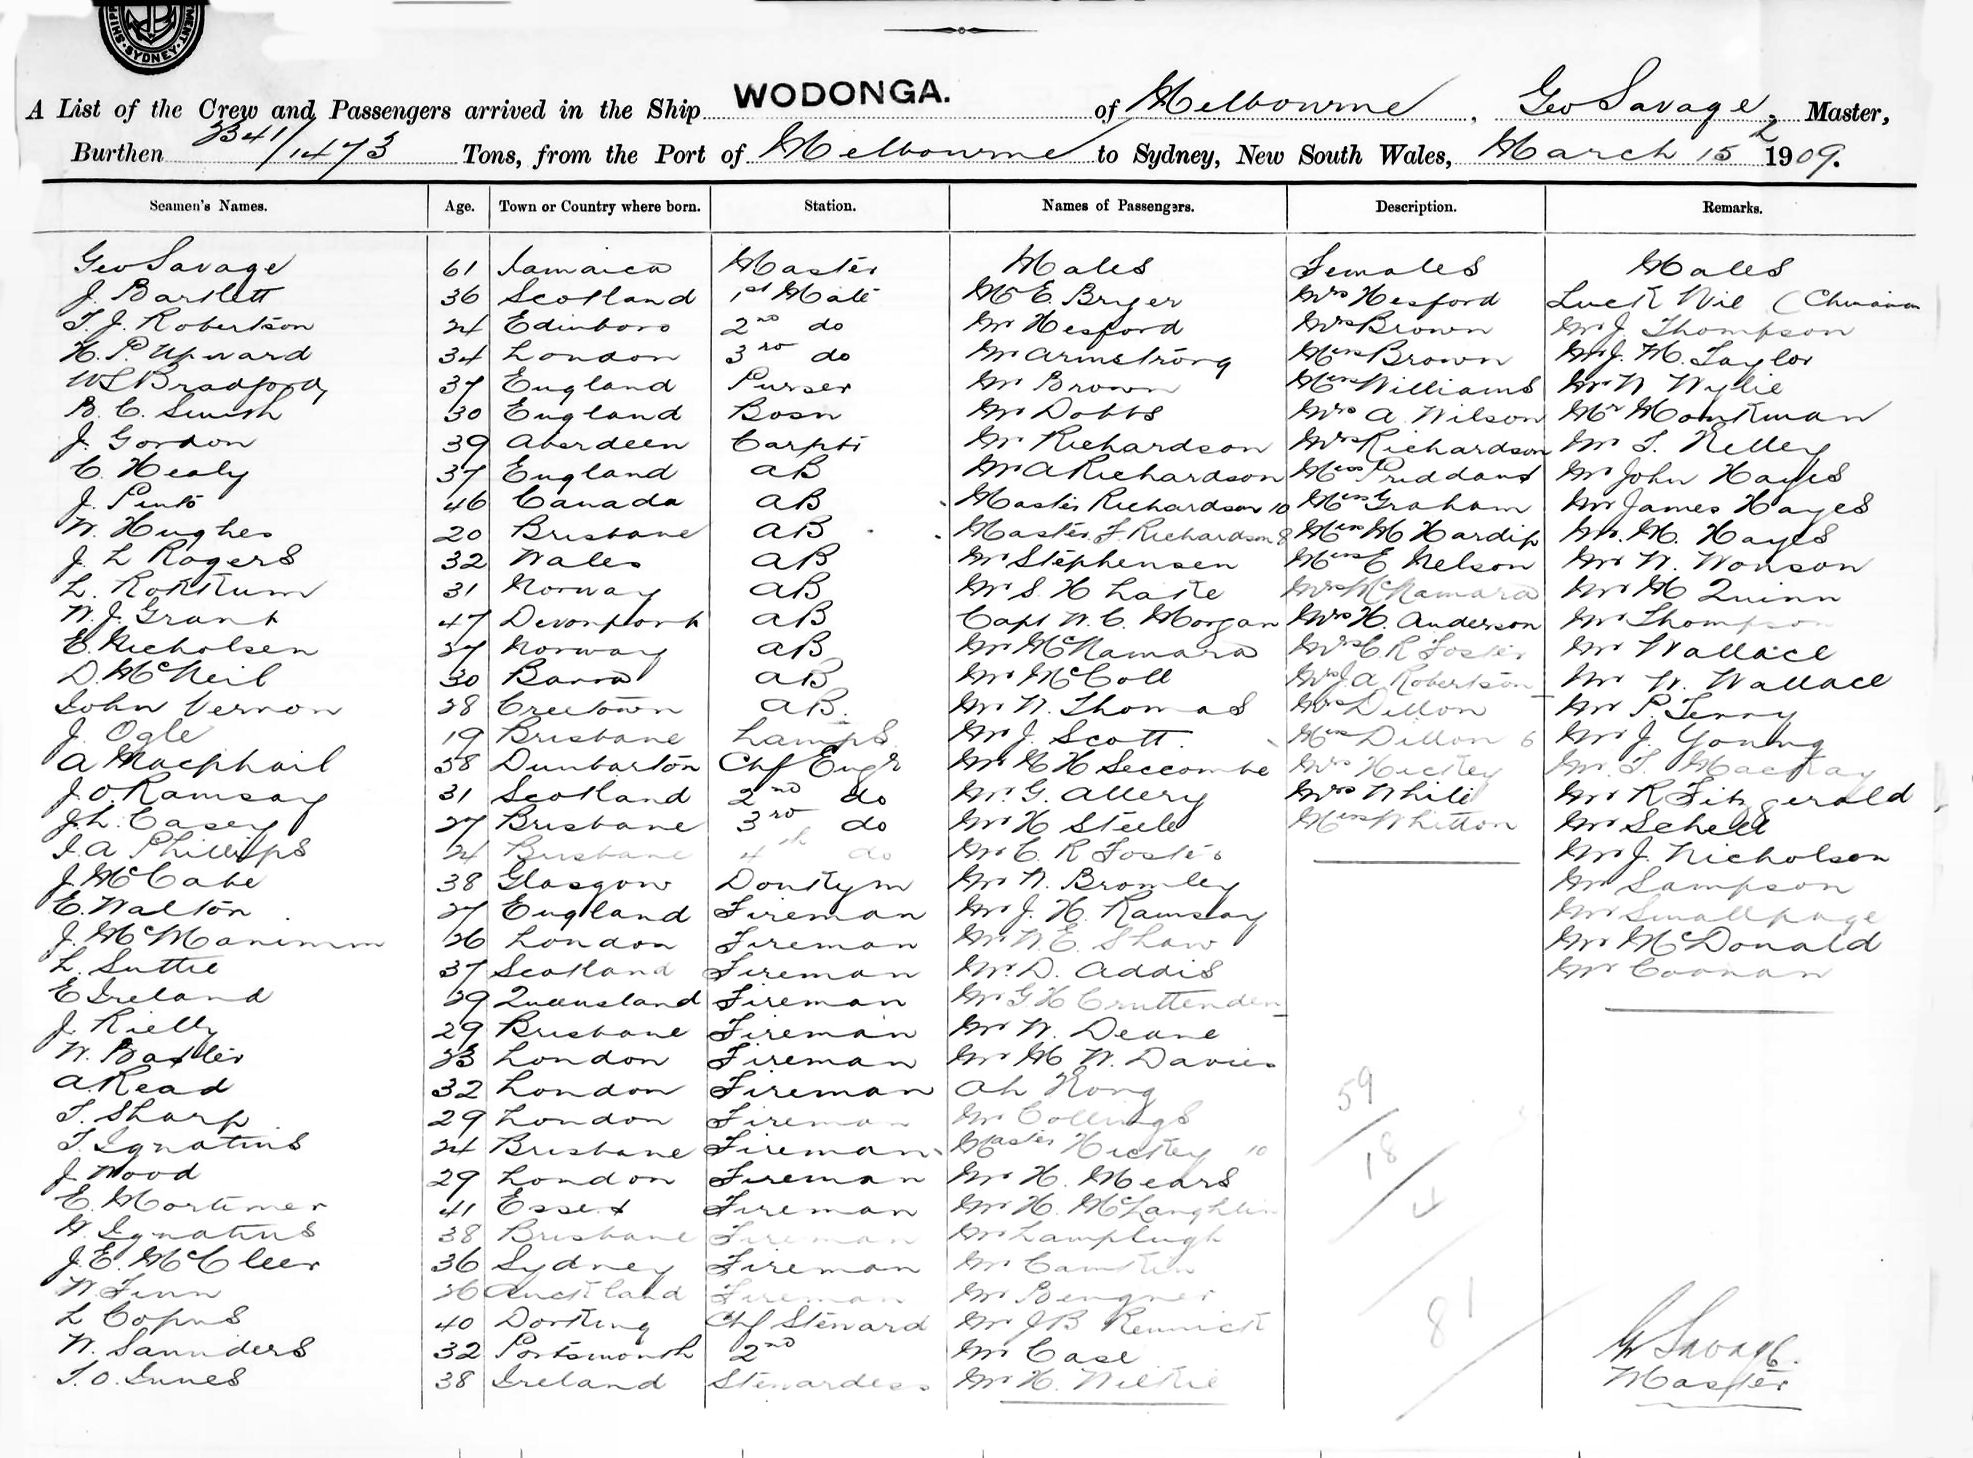 SYDNEY
WODONGA.
A List of the Crew and Passengers arrived in the Ship WODONGA. of Melbourne, Geo Savage, Master,
Burthen 2341/1473 Tons, from the Port of Melbourne to Sydney, New South Wales, March 15 2 1909.
Seamen's Names. Age. Town or Country where born. Station. Names of Passengers. Description. Remarks.
Geo Savage 61 Jamaica Master Males Females Males
J. Bartlett 36 Scotland 1st Mate Mr E. Bryer Mrs Hesford Luck Nie (Chinaman
T. J. Robertson 24 Edinboro 2nd do Mr Hesford Mrs Brown Mr J. Thompson
H. P. Upward 34 London 3rd do Mr Armstrong Miss Brown Mr J. H. Taylor
W L Bradford 37 England Purser Mr Brown Miss Williams Mr W Wylie
B. C. Smith 30 England Bosn Mr Dobbs Mrs A. Wilson Mr Monkman
J. Gordon 39 Aberdeen Carptr Mr Richardson Mrs Richardson Mr T. Kelley
C. Healy 37 England AB Mr A Richardson Miss Mr John Hayes
J. Pinto 46 Canada AB Master Richardson 10 Miss Graham Mr James Hayes
W. Hughes 20 Brisbane AB Master F. Richardson 8 Miss M Mr. M. Hayes
J. L Rogers 32 Wales AB Mr Stephensen Miss E Nelson Mr W. Wonson
L. 31 Norway AB Mr S. H Lake Mrs McNamara Mr M Quinn
W. J. Grant 47 Devonport AB Capt W. C. Morgan Mrs H. Anderson Mr Thompson
E. Nicholsen 27 Norway AB Mr McNamara Mrs C. R Foster Mr Wallace
D. McNeil 30 Barra AB Mr McColl Mrs J A Robertson Mr W. Wallace
John Vernon 28 Creetown AB. Mr W. Thomas Mrs Dillon Mr P.
J. Ogle 19 Brisbane Lamps. Mr J. Scott. Miss Dillon 6 Mr J. Young
A Macphail 58 Dunbarton Chf Engr Mr H Seccombe Mrs Hickey Mr T. MacKay
J. O. Ramsay 31 Scotland 2nd do Mr. G. Allery Mrs White Mr R Fitzgerald
J. L. Casey 27 Brisbane 3rd do Mr H Steele Miss Whitton Mr Schell
J. A Phillips 24 Brisbane 4th do Mr C. R Foster Mr J. Nicholson
J. McCabe 38 Glasgow Donkym Mr W. Bromley Mr Sampson
E. Walton 27 England Fireman Mr J. H. Ramsay Mr Smallpage
J. 26 London Fireman Mr W. E. Shaw Mr McDonald
L. Suttie 37 Scotland Fireman Mr D. Addis Mr Coonan
E Ireland 29 Queensland Fireman Mr G H Cruttenden
J. Rielly 29 Brisbane Fireman Mr W. Deane
W. Baxter 23 London Fireman Mr M. W. Davies
A. Read 32 London Fireman Ah Kong
T. Sharp 29 London Fireman Mr Collings 59
T. Ignatius 24 Brisbane Fireman Master Hickey 10 18
J. Wood 29 London Fireman Mr H. Mears
E. Mortimer 41 Essex Fireman Mr H. McLaughlin 4
W. Ignatius 38 Brisbane Fireman Mr Lamplugh
J. E. McCleer 36 Sydney Fireman Mr
W. Finn 26 Auckland Fireman Mr
L Copus 40 Dorking Chf Steward Mr J B Rennick 81
W. Saunders 32 Portsmouth 2nd Mr Case G Savage.
T. O. Innes 38 Ireland Stewardess Mr H. Wilkie Master